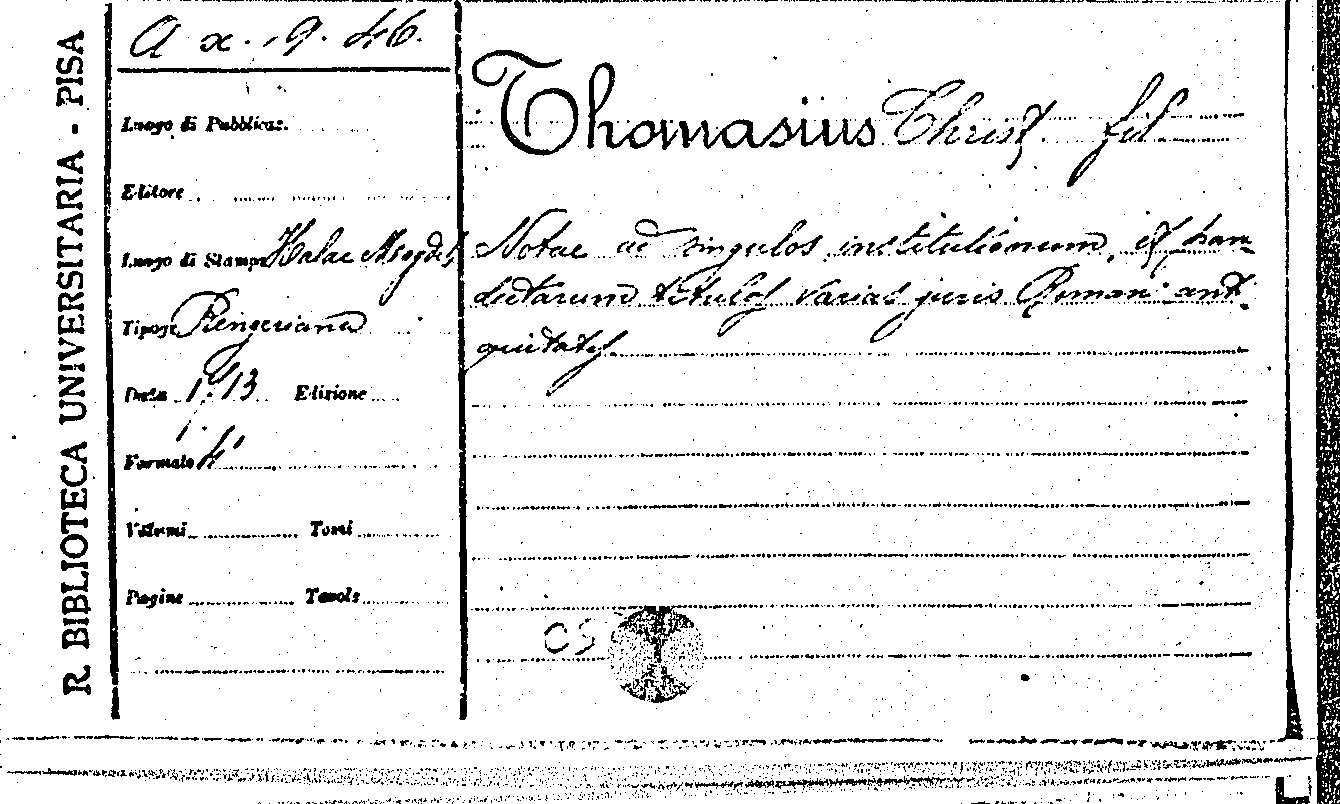 R. BIBLIOTECA UNIVERSITARIA - PISA
a x. 9. 46.
Luogo di Pubblicaz.
Editore
Luogo di Stampa Halae Magdeb
Tipogr. Rengeriana
Data 1713 Edizione
Formato 4°
Volumi Tomi
Pagine Tavole
Thomasius Christ. fil.
Notae ad singulos institutionum et pan
dectarum titulos varias juris Roman. anti
quitates.
CS